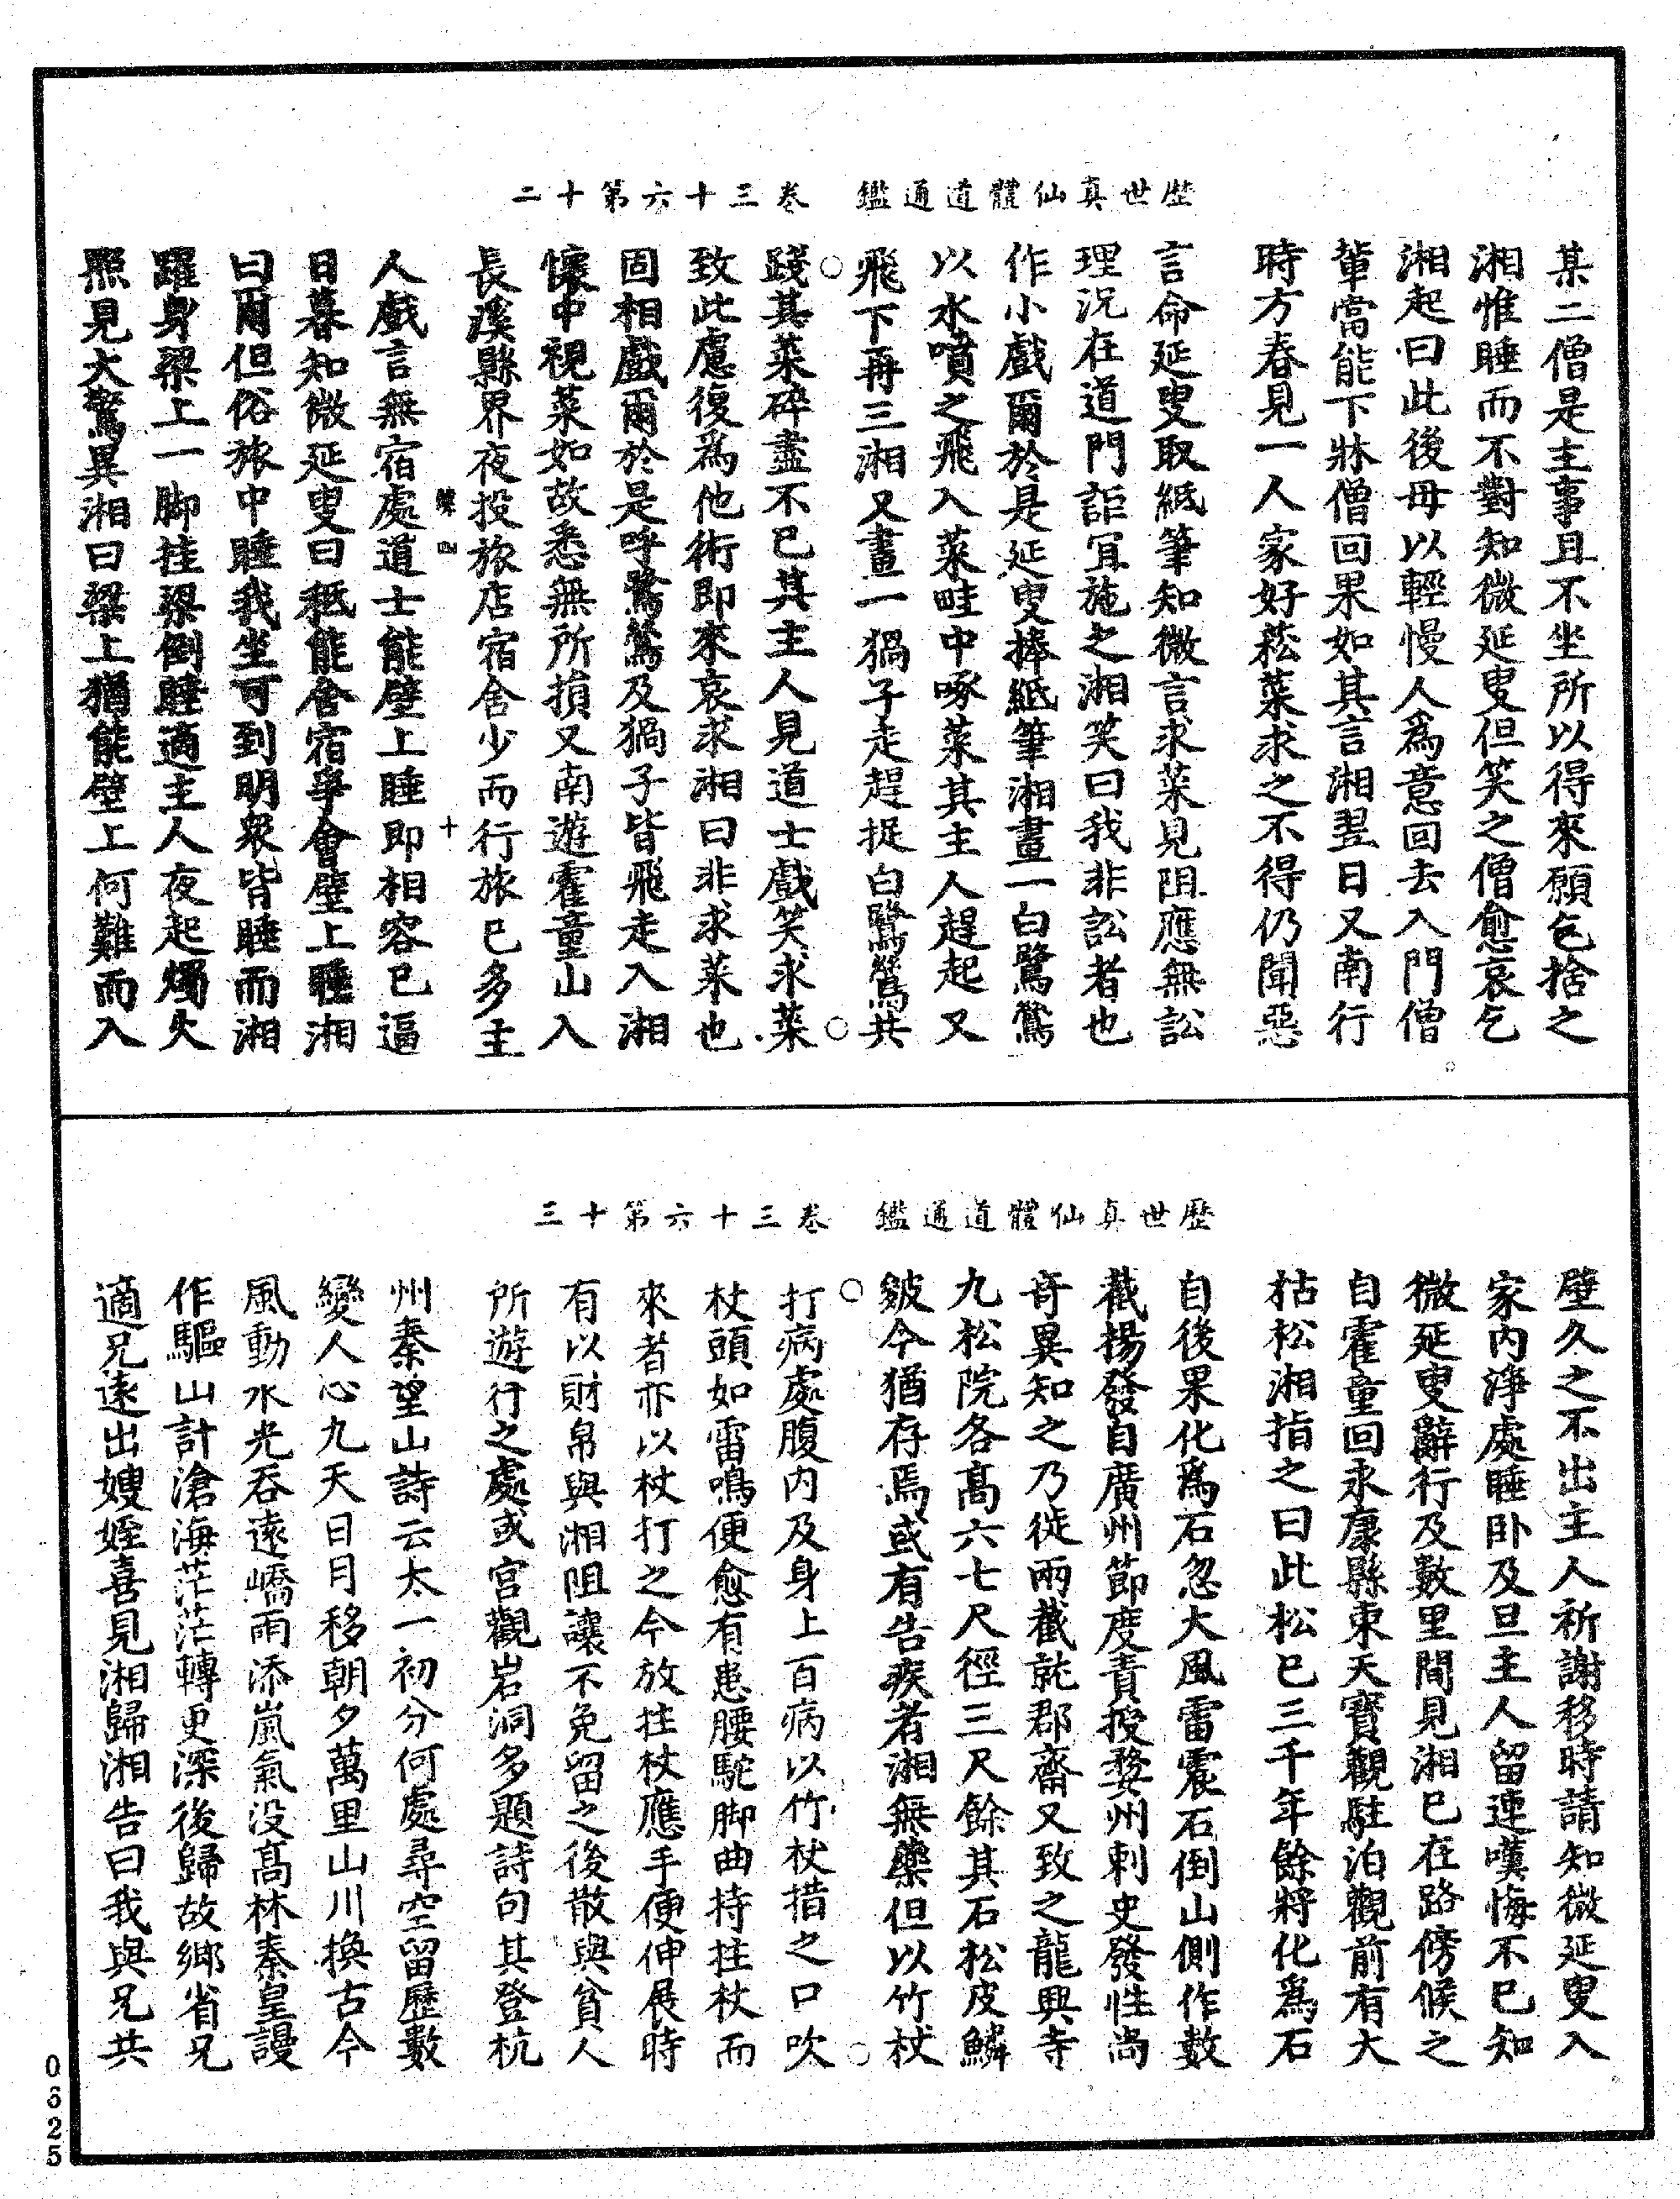 歷世真仙體道通鑑　卷三十六第十二
某二僧是主事且不坐所以得來願乞捨之
湘惟睡而不對知微延叟但笑之僧愈哀乞
湘起曰此後毋以輕慢人爲意回去入門僧
輩當能下牀僧回果如其言湘翌日又南行
時方春見一人家好菘菜求之不得仍聞惡
言命延叟取紙筆知微言求菜見阻應無訟
理況在道門詎冝施之湘笑曰我非訟者也
作小戲爾於是延叟捧紙筆湘畫一白鷺鷥
以水噴之飛入菜畦中啄菜其主人趕起又
飛下再三湘又畫一猧子走趕捉白鷺鷥共
踐其菜碎盡不已其主人見道士戲笑求菜
致此慮復爲他術即來哀求湘曰非求菜也
固相戲爾於是呼鷺鷥及猧子皆飛走入湘
懷中視菜如故悉無所損又南遊霍童山入
長溪縣界夜投旅店宿舍少而行旅已多主
十
人戲言無宿處道士能壁上睡即相容已逼
日暮知微延叟曰秪能舍宿爭會壁上睡湘
曰爾但俗旅中睡我坐可到明衆皆睡而湘
躍身梁上一脚挂梁倒睡適主人夜起燭火
照見大驚異湘曰梁上猶能壁上何難而入
歷世真仙體道通鑑　卷三十六第十三
壁久之不出主人祈謝移時請知微延叟入
家內淨處睡卧及旦主人留連嘆悔不已知
微延叟辭行及數里間見湘已在路傍候之
自霍童回永康縣東天寶觀駐泊觀前有大
枯松湘指之曰此松已三千年餘將化爲石
自後果化爲石忽大風雷震石倒山側作數
截揚發自廣州節度責授婺州刺史發性尚
竒異知之乃徙兩截就郡齋又致之龍興寺
九松院各高六七尺徑三尺餘其石松皮鱗
皴今猶存焉或有告疾者湘無藥但以竹杖
打病處腹内及身上百病以竹杖措之口吹
杖頭如雷鳴便愈有患腰駝脚曲持拄杖而
來者亦以杖打之令放拄杖應手便伸展時
有以財帛與湘阻讓不免留之後散與貧人
所遊行之處或宫觀岩洞多題詩句其登杭
州秦望山詩云太一初分何處尋空留歷數
變人心九天日月移朝夕萬里山川換古今
風動水光吞遠嶠雨添嵐氣没高林秦皇謾
作驅山計滄海茫茫轉更深後歸故鄉省兄
適兄遠出嫂姪喜見湘歸湘告曰我與兄共
0625